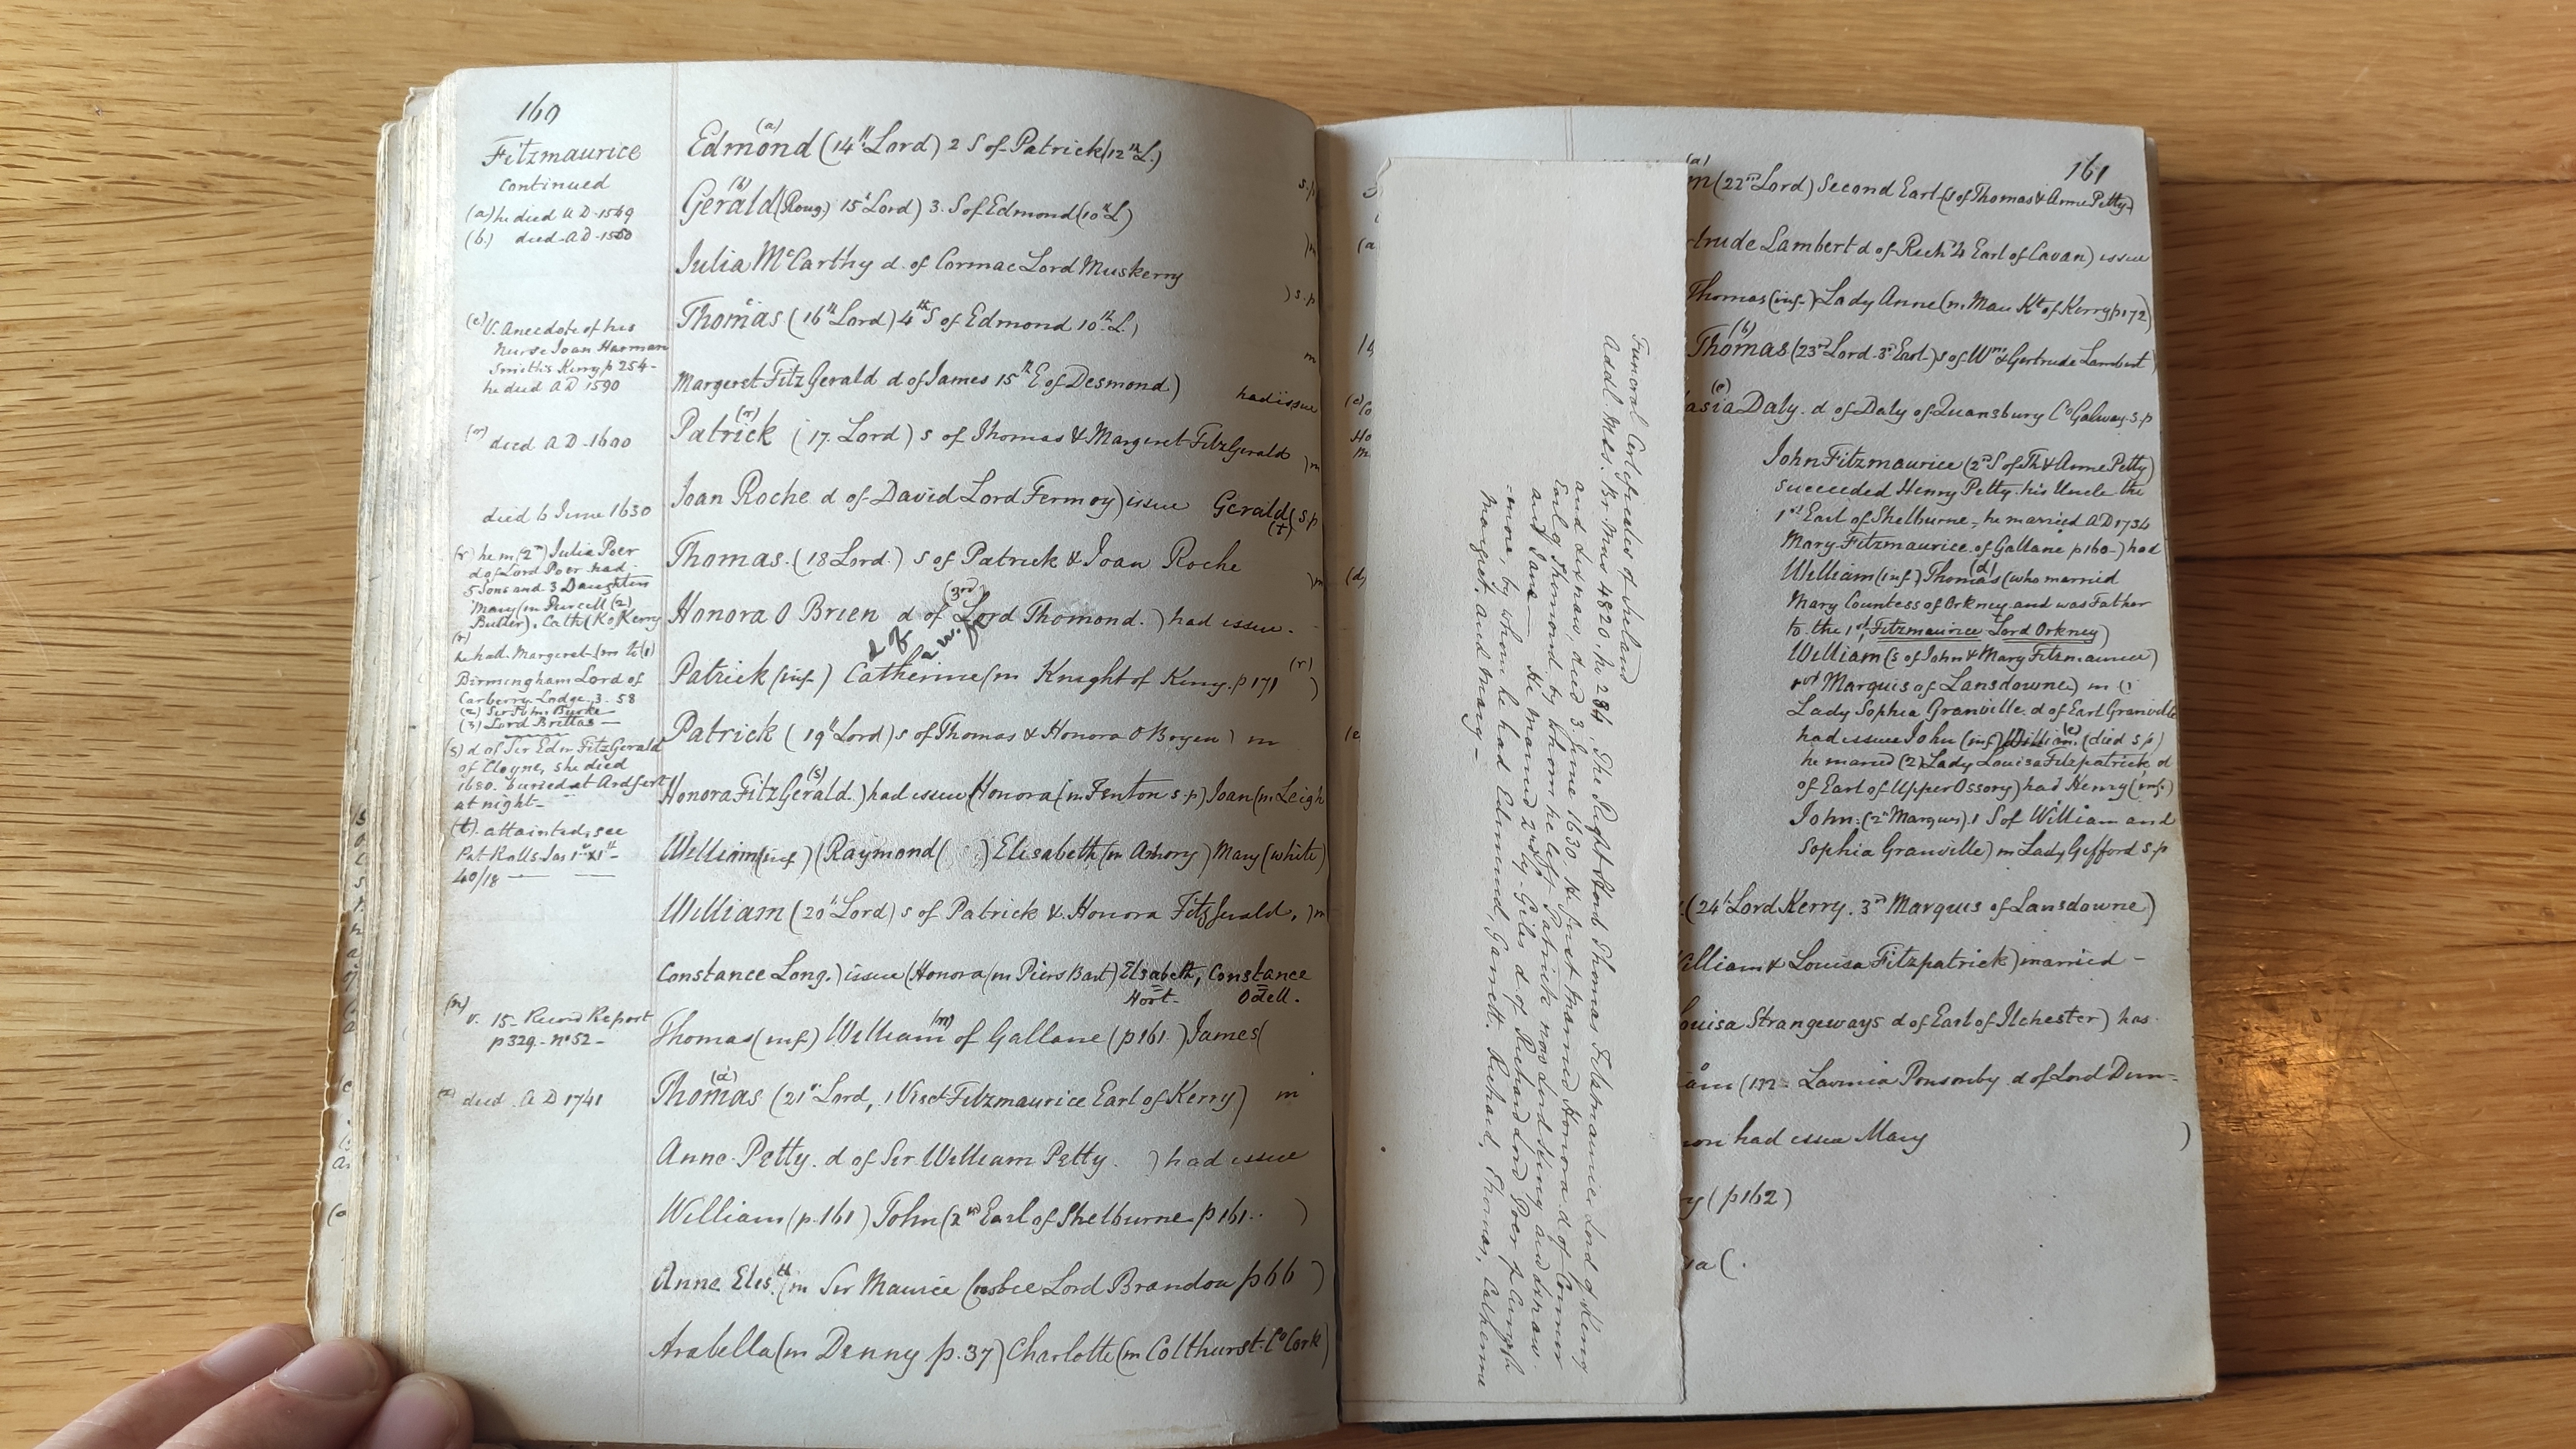 160
Fitzmaurice
continued
(a) he died AD 1569
(b.) died AD 1560
(e) V. Anecdote of his
Nurse Joan Harman
Smith's Kerry p 254-
he died AD 1590
died AD 1600
died 6 June 1630
(r) he m (2nd) Julia Poer
d of Lord Poer had
5 Sons and 3 Daughters
Mary (m Purcell (2)
Butler). Cath (K of Kerry
(r)
he had Margaret (m to (1)
Birmingham Lord of
Carberry Lodge, 3. 58
(2) Sir John Burke
(3) Lord Brittas —
(s) d of Sir Edm FitzGerald
of Cloyne, she died
1680. buried at Ardfert
at night-
(t). attainted, see
Pat Rolls Jas 1st
40/18 —
(m) v. 15- Record Report
p329- no 52-
died AD 1741
(a)
Edmond (14th Lord) 2 S of Patrick (12th L.)
s.p
(b)
Gerald (Roug.) 15th Lord) 3. S of Edmond (10th L)
)m
Julia McCarthy d. of Cormac Lord Muskerry
) s.p
e
Thomas (16th Lord) 4th S of Edmond 10th L.)
m
Margeret FitzGerald d of James 15th E. of Desmond)
had issue
(r)
Patrick (17. Lord) s of Thomas & Margaret FitzGerald )m
Joan Roche d of David Lord Fermoy) issue Gerald (s p
(t)
Thomas. (18 Lord.) s of Patrick & Joan Roche )m
(3rd)
Honora O Brien d of Lord Thomond. ) had issue.
Patrick (inf.) Catherine (m Knight of Kerry. p 171 (r) )
Patrick (19th Lord) s of Thomas & Honora O Bryen) m
(s)
Honora FitzGerald.) had issue (Honora (m Fenton s.p) Joan (m Leigh
William (inf) (Raymond ( ) Elisabeth (m Amory) Mary (white)
William (20th Lord) s of Patrick & Honora FitzGerald, )m
Constance Long.) issue (Honora (m Piers Bart) Elsabeth, Constance
Hort- Odell.
Thomas (inf) William (m) of Gallane (p161 ) James (
(a)
Thomas (21st Lord, 1 Visct Fitzmaurice Earl of Kerry) m
Anne Petty. d of Sir William Petty. ) had issue
William (p. 161) John (2nd Earl of Shelburne p 161.. )
Anne Elis.th (m Sir Maurice Crosbee Lord Brandon p 66 )
Arabella (m Denny p. 37) Charlotte (m Colthurst Co Cork)
Funeral Certificates of Ireland
Addl. Mss. Br. Mus 4820, p. 284, The Right Honb Thomas Fitzmaurice Lord of Kerry
and Lixnaw, died 3 June 1630. He first married Honora d of Conner
Earl of Thomond by whom he left Patrick now Lord Kerry and Lixnaw.
and Jane — He married 2ndly Giles d of Richard Lord Poer of Curragh
-more, by whom he had Edmund, Garrett. Richard, Thomas, Catherine
Margret. and Mary —
161
(a)
(22nd Lord) Second Earl (s of Thomas & Anne Petty-)
trude Lambert d of Rich 4 Earl of Cavan) issue
Thomas (inf-) Lady Anne (m. Mau Kt of Kerry p172)
(b)
Thomas (23rd Lord 3rd Earl-) s of Wm & Gertrude Lambert)
(c)
asia Daly. d of Daly of Quansbury Co Galway s.p
John Fitzmaurice (2nd S of Th & Anne Petty)
succeeded Henry Petty his Uncle the
1st Earl of Shelburne - he married AD 1734
Mary Fitzmaurice of Gallane p160-) had
William (inf) Thomas (d) (who married
Mary Countess of Orkney and was Father
to the 1st Fitzmaurice Lord Orkney)
William (s of John & Mary Fitzmaurice)
1st Marquis of Lansdowne) m (1
Lady Sophia Granville d of Earl Granville
had issue John (inf) William (e) (died s p)
he maried (2) Lady Louisa Fitzpatrick d
of Earl of Upper Ossory) had Henry (inf.)
John: (2nd Marquis) 1 S of William and
Sophia Granville) m Lady Gifford s p
(24th Lord Kerry. 3rd Marquis of Lansdowne)
William & Louisa Fitzpatrick) married -
ouisa Strangeways d of Earl of Ilchester) has
am (m- Lavinia Ponsonby d of Lord Dun=
non had issue Mary )
y (p162)
ia (.